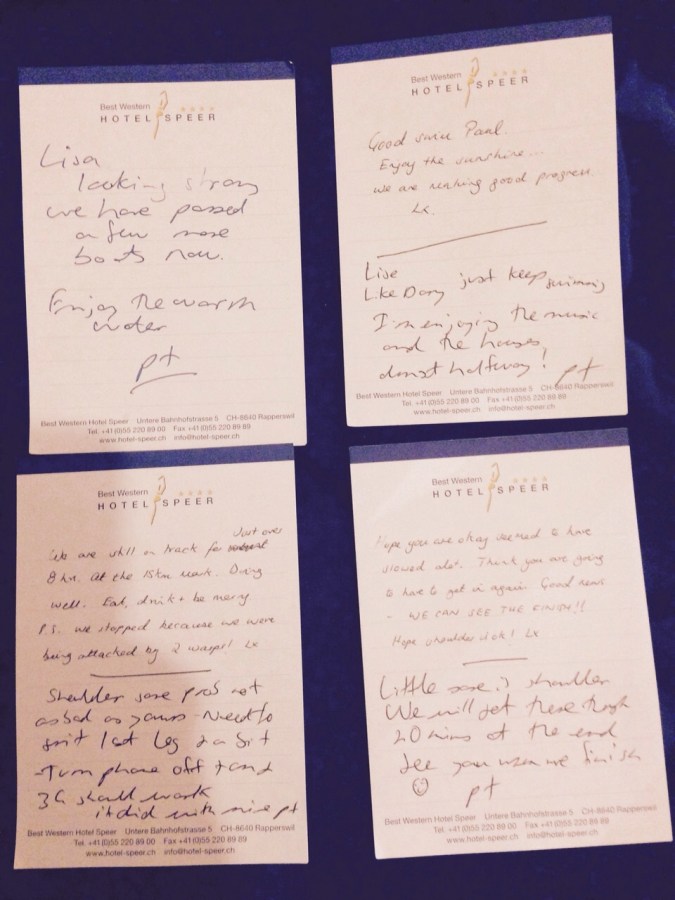 Best Western
HOTEL SPEER
Lisa
looking strong
we have passed
a few more
boats now.
Enjoy the warm
water
pt
Best Western Hotel Speer Untere Bahnhofstrasse 5 CH-8640 Rapperswil
Tel. +41 (0)55 220 89 00 Fax +41 (0)55 220 89 89
www.hotel-speer.ch info@hotel-speer.ch
Best Western
HOTEL SPEER
Good swim Paul.
Enjoy the sunshine...
we are making good progress.
Lx.
Lise
Like Dory just keep swimming
I'm enjoying the music
and the houses
almost halfway! pt
Best Western Hotel Speer Untere Bahnhofstrasse 5 CH-8640 Rapperswil
Tel. +41 (0)55 220 89 00 Fax +41 (0)55 220 89 89
www.hotel-speer.ch info@hotel-speer.ch
Best Western
HOTEL SPEER
Just over
We are still on track for
8 hrs. At the 15km mark. Doing
well. Eat, drink + be merry
P.S. we stopped because we were
being attacked by 2 wasps! Lx
Shoulder sore prob not
as bad as yours - Need to
last leg a bit
- Turn phone off + and
3G should work
it did with mine pt
Best Western Hotel Speer Untere Bahnhofstrasse 5 CH-8640 Rapperswil
Tel. +41 (0)55 220 89 00 Fax +41 (0)55 220 89 89
www.hotel-speer.ch info@hotel-speer.ch
Best Western
HOTEL SPEER
Hope you are okay seemed to have
slowed a lot. Think you are going
to have to get in again. Good news
- WE CAN SEE THE FINISH!!
Hope shoulder is ok! Lx
Little sore is shoulder
We will get there though
20 mins at the end
See you when we finish
pt
Best Western Hotel Speer Untere Bahnhofstrasse 5 CH-8640 Rapperswil
Tel. +41 (0)55 220 89 00 Fax +41 (0)55 220 89 89
www.hotel-speer.ch info@hotel-speer.ch